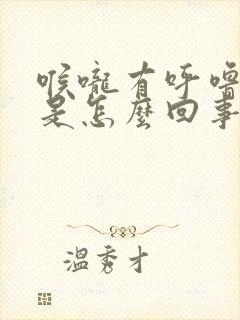 喉嚨有呼嚕
是怎麼回事
溫秀才